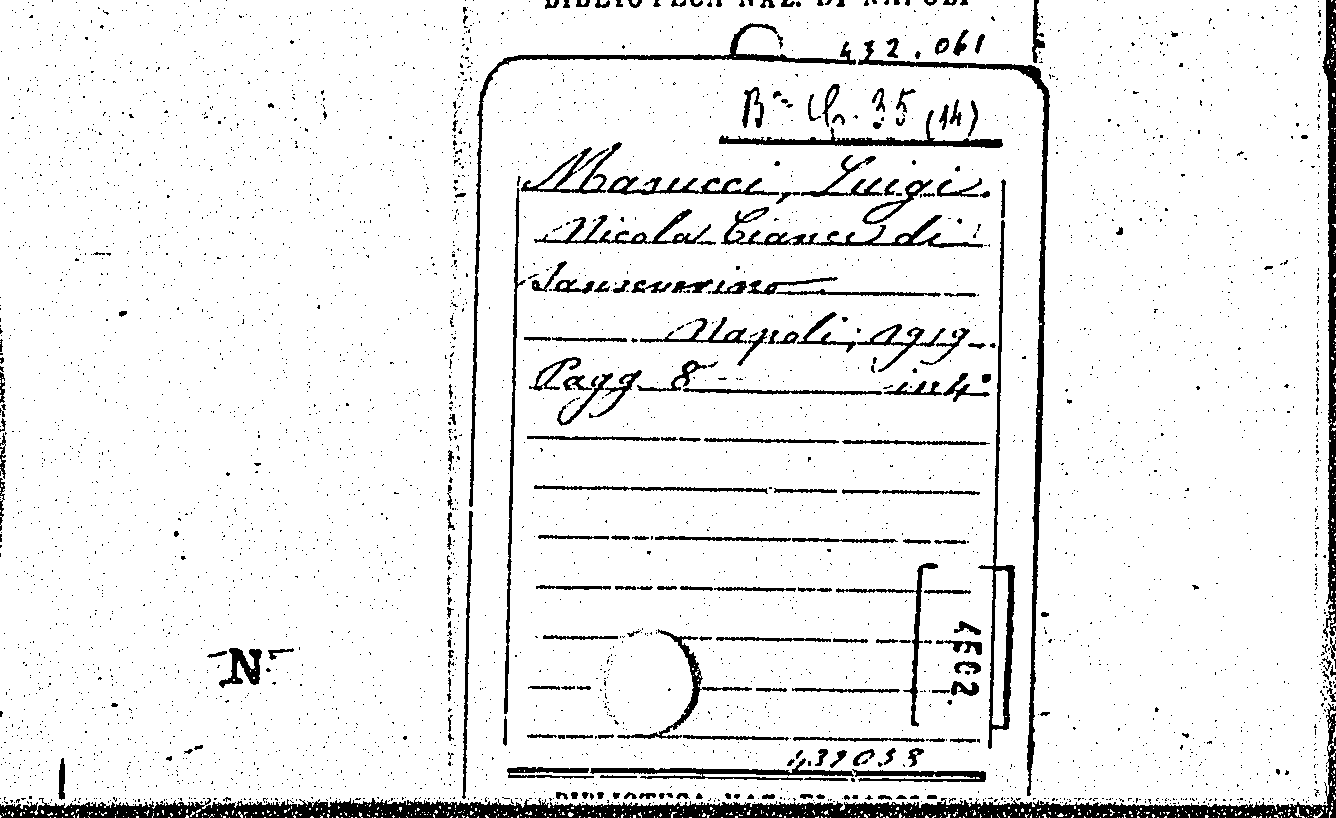 BIBLIOTECA NAZ. DI NAPOLI
432.061
35 (14)
Masucci, Luigi.
Nicola Cianci di
Sanseverino
Napoli; 1919.
Pagg. 8 in 4°
4502
N
BIBLIOTECA NAZ. DI NAPOLI